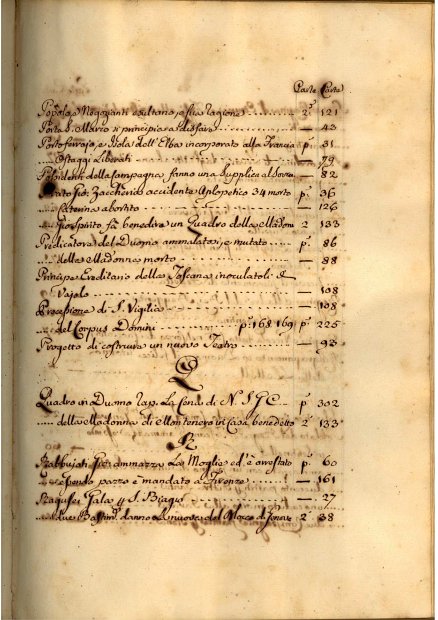 Parte Carte
Popolo, e Negozianti esultano, e sua ragione 2 121
Porta S. Marco si principia a disfare — 43
Portoferrajo, e Isola dell'Elba incorporato alla Francia p 31
Ostaggi Liberati — 79
Presidenti della Campagna fanno una Supplica al — 82
Gio: Zaccheria accidente Apopletico 34 morto p 36
Caterina abortito — 126
Gio Spirito fà benedire un Quadro della Madon 2 133
Predicatora del Duomo ammalatosi, e mutato p 86
della Madonna morto — 88
Principe Ereditario della Toscana inoculatoli il
Vajolo — 108
Processione di S. Vigilia — 108
del Corpus Domini p 168 169 p 225
Progetto di costruire un nuovo Teatro — 93
Q
Quadro in Duomo rap. La Cena di N. S. G. C. p 302
della Madonna di Montenero in Casa benedetto 2 133
R
Rabbujati Gio: ammazza La Moglie ed è arrestato p 60
essendo pazzo è mandato a Firenze — 161
Ragusei Gala S. Biagio — 27
due danno nuove del Blocco di 2 38